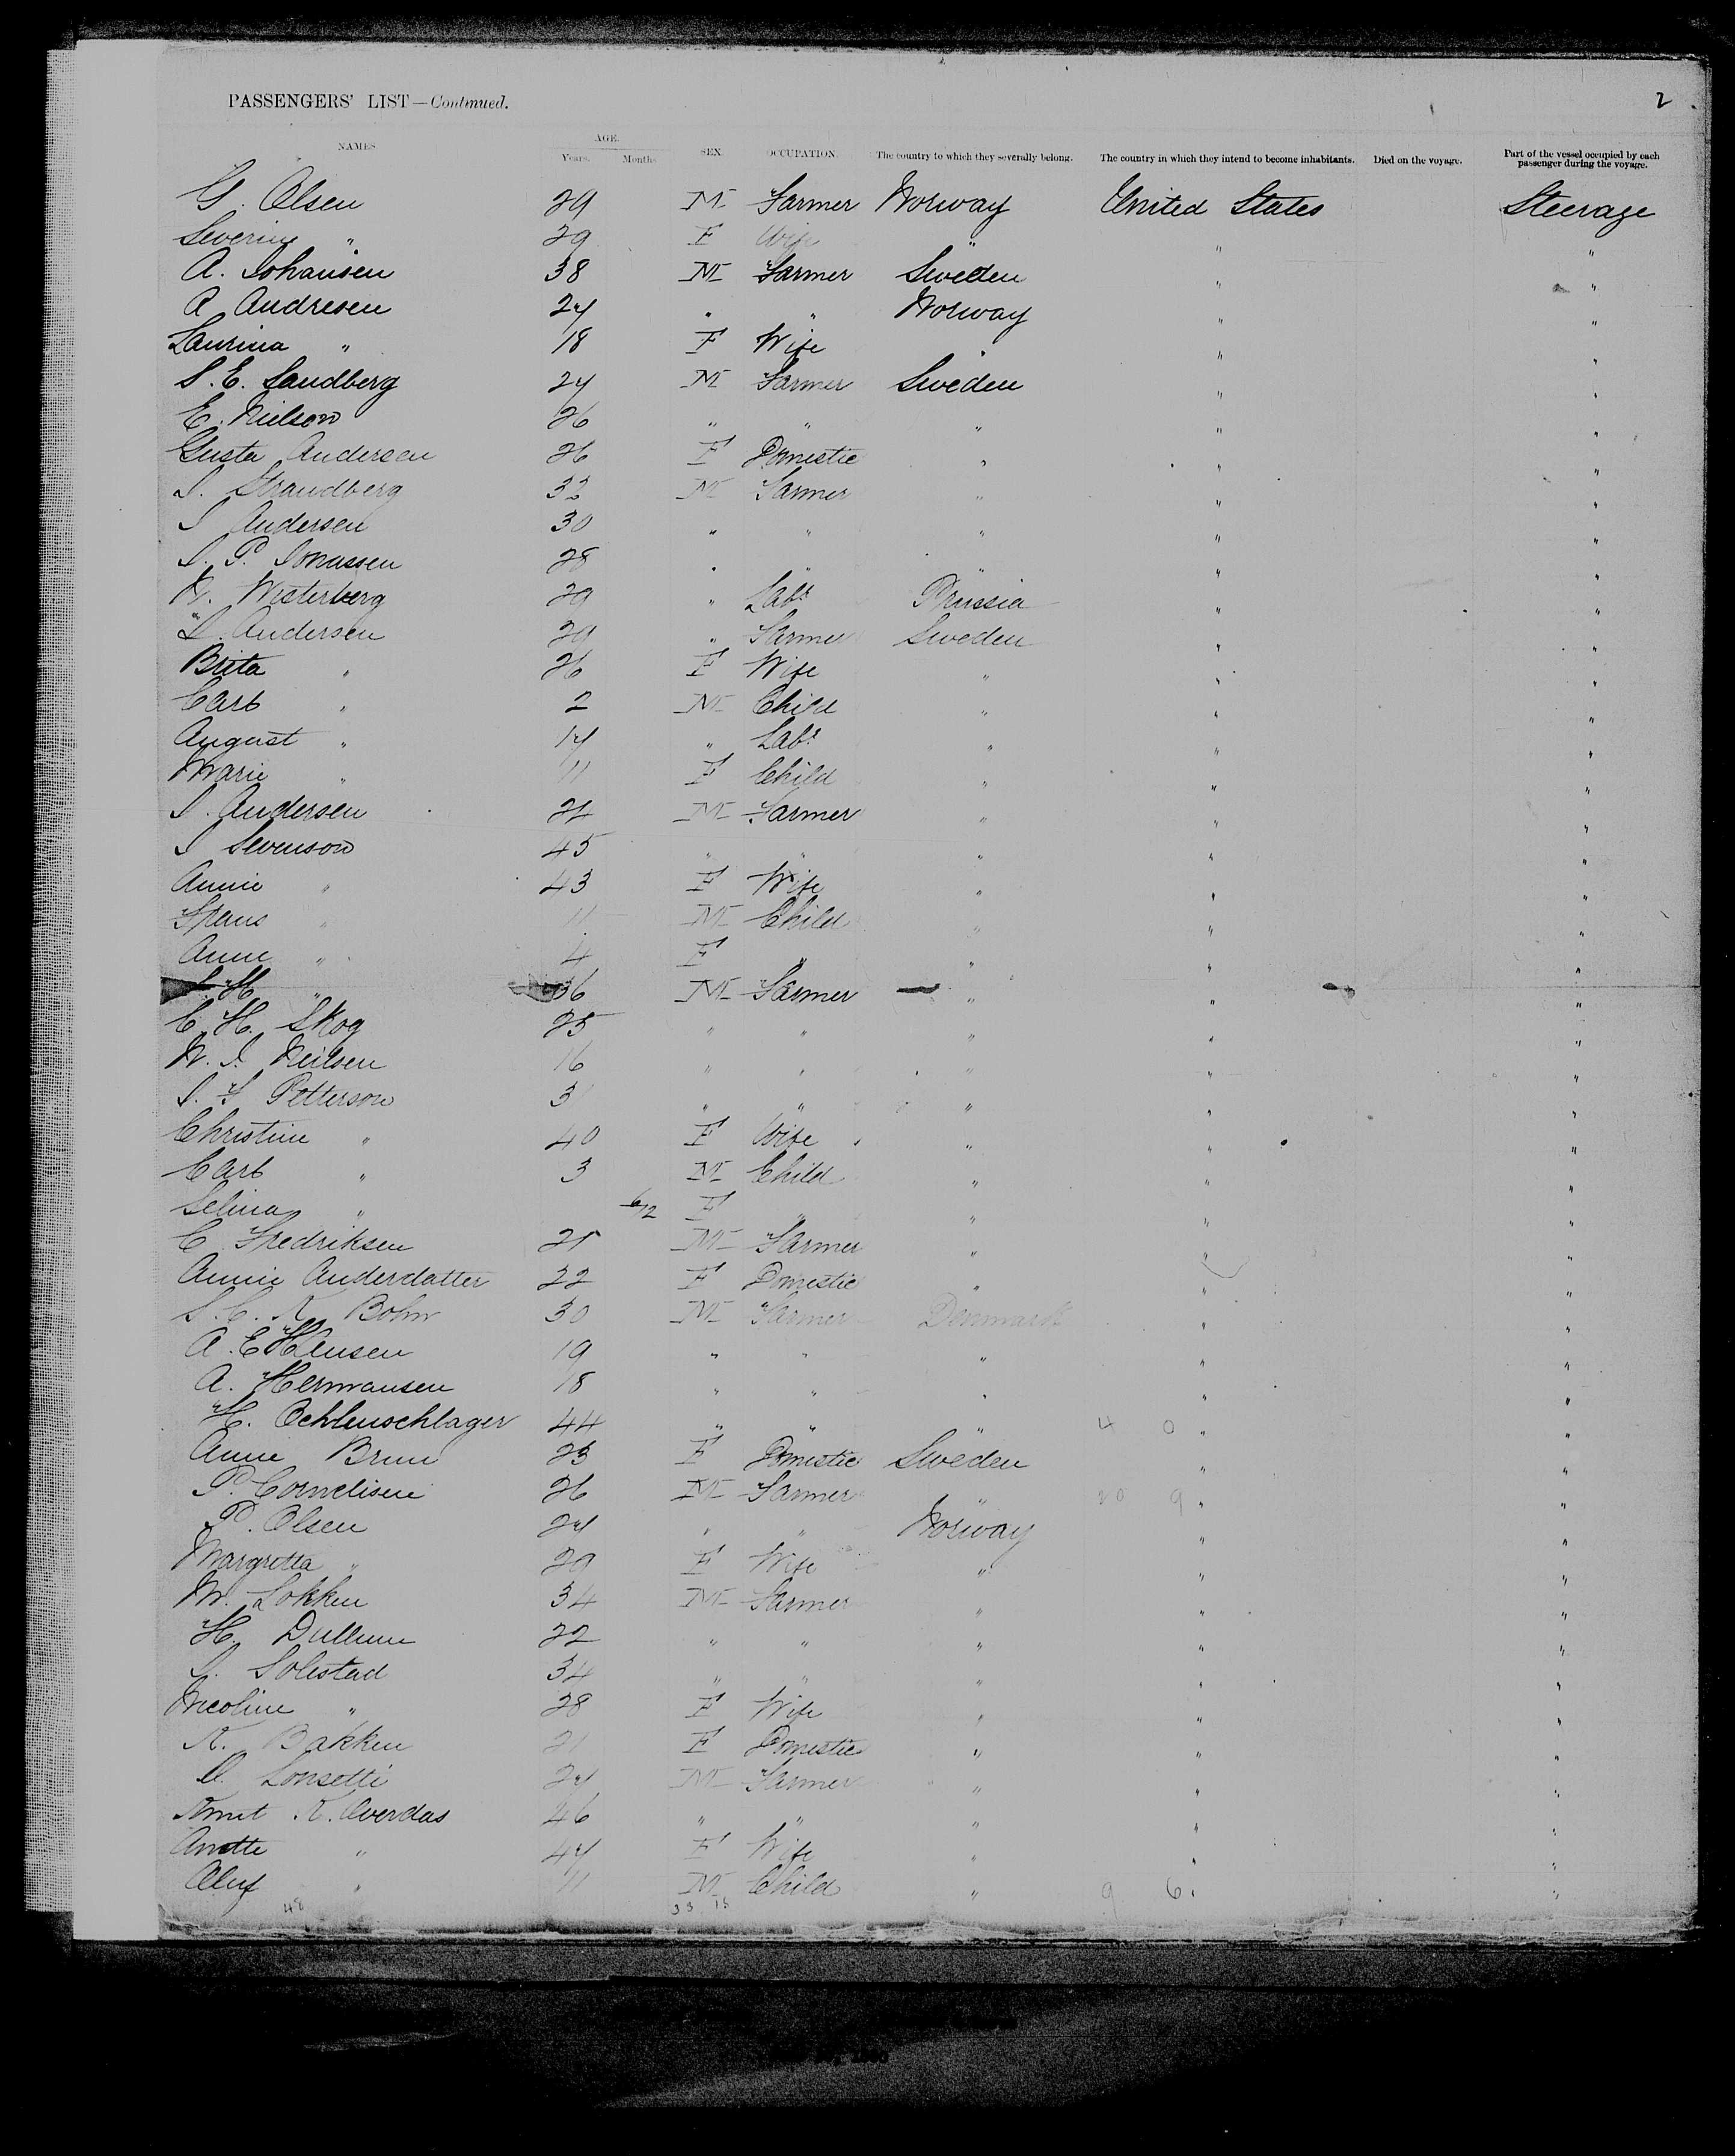 PASSENGERS' LIST—Continued. 2
NAMES. AGE. Years. Months. SEX. OCCUPATION. The country to which they severally belong. The country in which they intend to become inhabitants. Died on the voyage. Part of the vessel occupied by each passenger during the voyage.
G. Olsen 29 M Farmer Norway United States Steerage
Severine " 29 F Wife " " "
A. Johansen 38 M Farmer Sweden " "
A Andresen 24 " " Norway " "
Laurina " 18 F Wife " " "
S. E. Sandberg 24 M Farmer Sweden " "
E. Nielson 26 " " " " "
Gusta Andersen 26 F Domestic " " "
J. Strandberg 32 M Farmer " " "
J Andersen 30 " " " " "
J. P. Jonassen 28 " " " " "
N. Westerberg 29 " Labr Prussia " "
L. Andersen 29 " Farmer Sweden " "
Brita " 26 F Wife " " "
Carl " 2 M Child " " "
August " 14 " Labr " " "
Marie " 11 F Child " " "
J. Andersen 24 M Farmer " " "
J Svenson 45 " " " " "
Annie " 43 F Wife " " "
Frans " 11 M Child " " "
Anne " 4 F " " " "
J. H " 36 M Farmer " " "
C. H. Skog 25 " " " " "
N. J. Neilsen 16 " " " " "
J. F Petterson 3 " " " " "
Christine " 40 F Wife " " "
Carl " 3 M Child " " "
Selina " 6/12 F " " " "
C Fredriksen 25 M Farmer " " "
Annie Andersdatter 22 F Domestic " " "
S. C. N. Bohn 30 M Farmer Denmark " "
A. E Hensen 19 " " " " "
A. Hermansen 18 " " " " "
H. Oehlenschlager 44 " " " 4 0 " "
Anne Brun 23 F Domestic Sweden " "
P. Cornelisen 26 M Farmer " 20 9 " "
P. Olsen 24 " " Norway " "
Margretta " 29 F Wife " " "
M. Lokken 34 M Farmer " " "
H. Dullum 22 " " " " "
J. Solestad 34 " " " " "
Nicoline " 28 F Wife " " "
K. Bakken 21 F Domestic " " "
O. Lonsetti 24 M Farmer " " "
Knut K. Overdas 46 " " " " "
Anette " 44 F Wife " " "
Oluf " 11 M Child " 9 6 " "
48 33 15